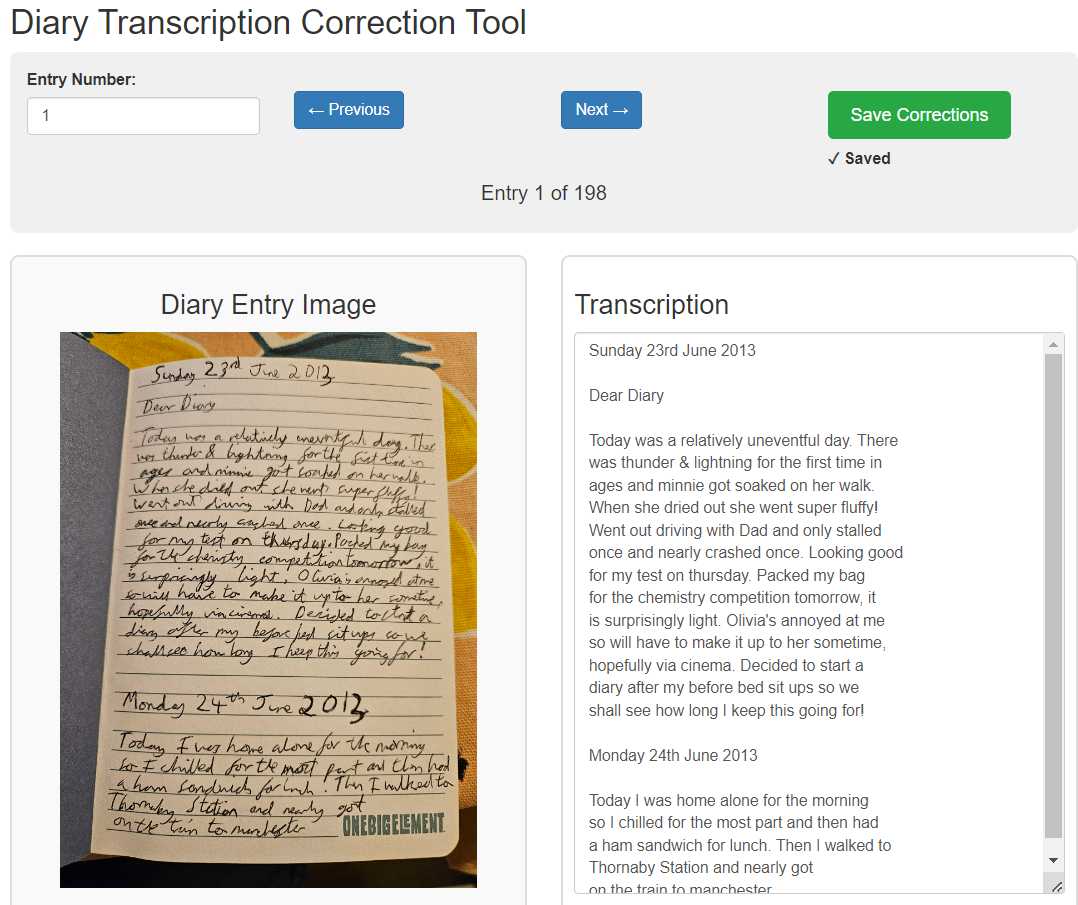 Diary Transcription Correction Tool
Entry Number:
1
← Previous
Next →
Save Corrections
✓ Saved
Entry 1 of 198
Diary Entry Image
Sunday 23rd June 2013
Dear Diary
Today was a relatively uneventful day. There
was thunder & lightning for the first time in
ages and minnie got soaked on her walk.
When she dried out she went super fluffy!
Went out driving with Dad and only stalled
once and nearly crashed once. Looking good
for my test on thursday. Packed my bag
for the chemistry competition tomorrow, it
is surprisingly light. Olivia's annoyed at me
so will have to make it up to her sometime,
hopefully via cinema. Decided to start a
diary after my before bed sit ups so we
shall see how long I keep this going for!
Monday 24th June 2013
Today I was home alone for the morning
so I chilled for the most part and then had
a ham sandwich for lunch. Then I walked to
Thornaby Station and nearly got
on the train to manchester
ONEBIGELEMENT
Transcription
Sunday 23rd June 2013
Dear Diary
Today was a relatively uneventful day. There
was thunder & lightning for the first time in
ages and minnie got soaked on her walk.
When she dried out she went super fluffy!
Went out driving with Dad and only stalled
once and nearly crashed once. Looking good
for my test on thursday. Packed my bag
for the chemistry competition tomorrow, it
is surprisingly light. Olivia's annoyed at me
so will have to make it up to her sometime,
hopefully via cinema. Decided to start a
diary after my before bed sit ups so we
shall see how long I keep this going for!
Monday 24th June 2013
Today I was home alone for the morning
so I chilled for the most part and then had
a ham sandwich for lunch. Then I walked to
Thornaby Station and nearly got
on the train to manchester